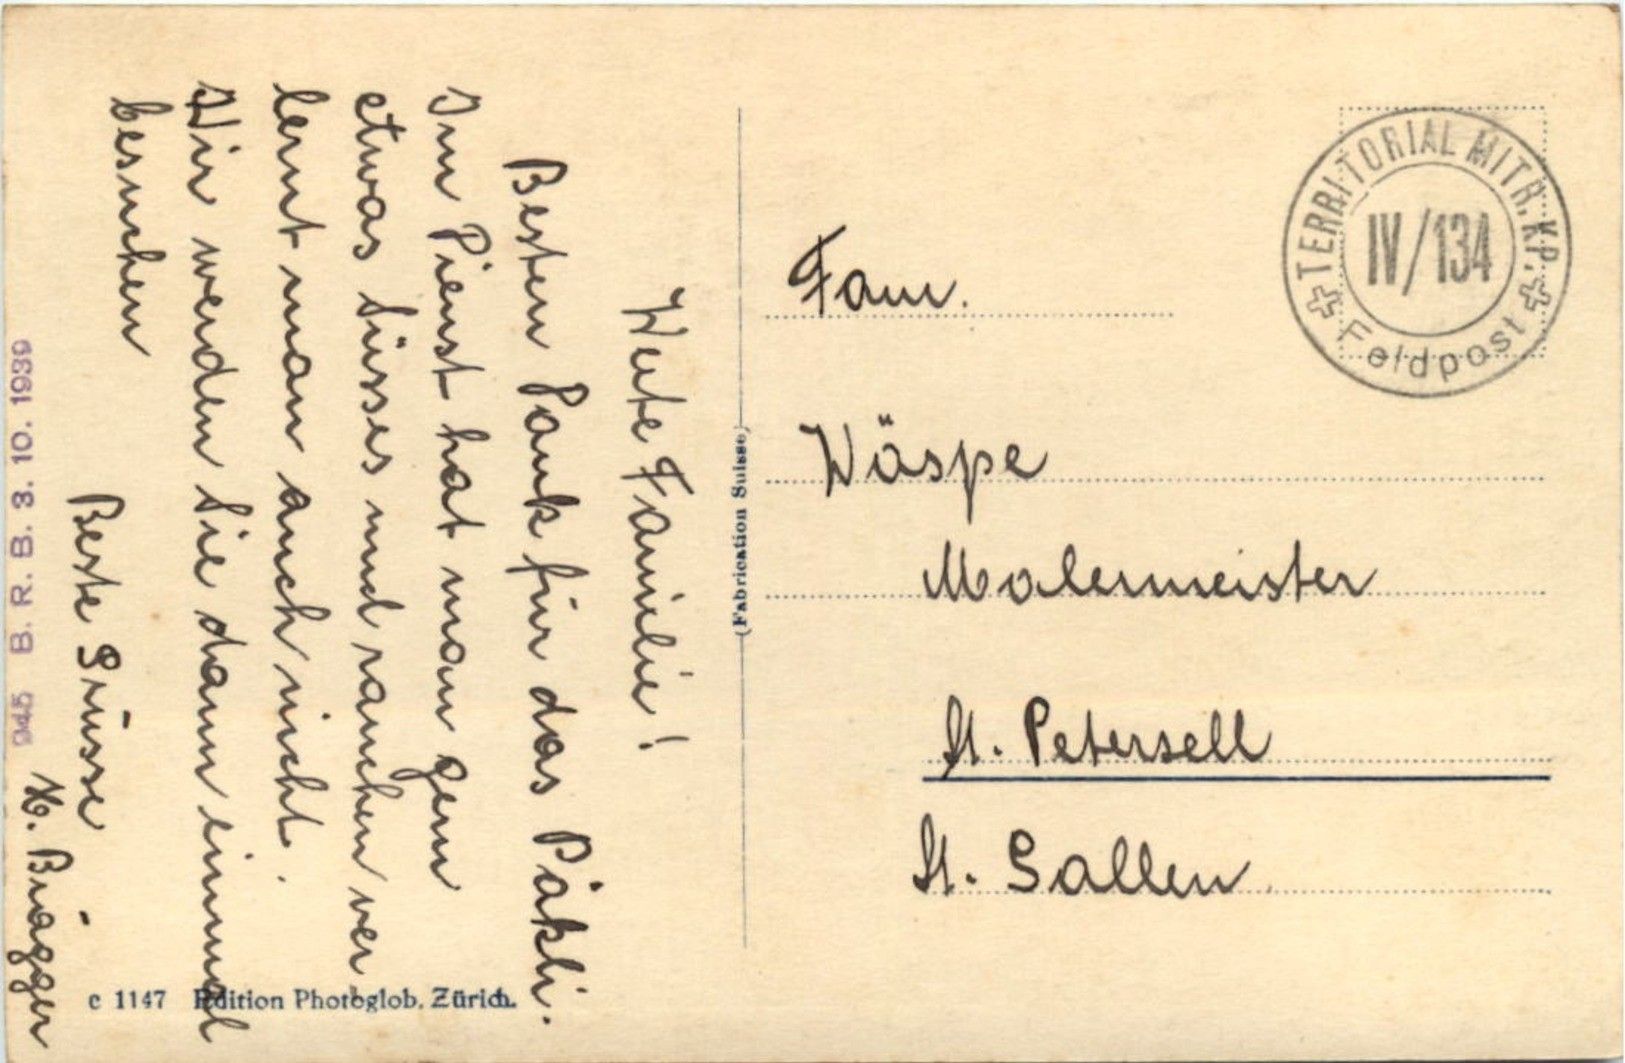 Werte Familie!
Besten Dank für das Päkli.
Im Dienst hat man gern
etwas Süsses und rauchen ver
lernt man auch nicht.
Wir werden Sie dann einmal
besuchen
Beste Grüsse
Brägger
945 B. R. B. 3. 10. 1939
c 1147 Edition Photoglob. Zürich.
(Fabrication Suisse)
TERRITORIAL MITR. KP.
IV/134
Feldpost
Fam.
Wäspe
Malermeister
St. Peterzell
St. Gallen